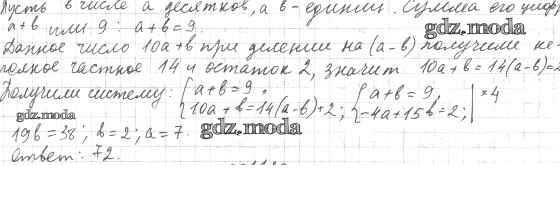 Пусть в числе a десятков, а b - единиц. Сумма его цифр
a+b или 9: a+b=9.
gdz.moda
Данное число 10a+b при делении на (a-b) получили не-
полное частное 14 и остаток 2, значит 10a+b=14(a-b)=2
Получили систему: { a+b=9, { a+b=9, | ×4
{ 10a+b=14(a-b)+2; { -4a+15b=2; |
gdz.moda
19b=38; b=2; a=7.
gdz.moda
Ответ: 72.